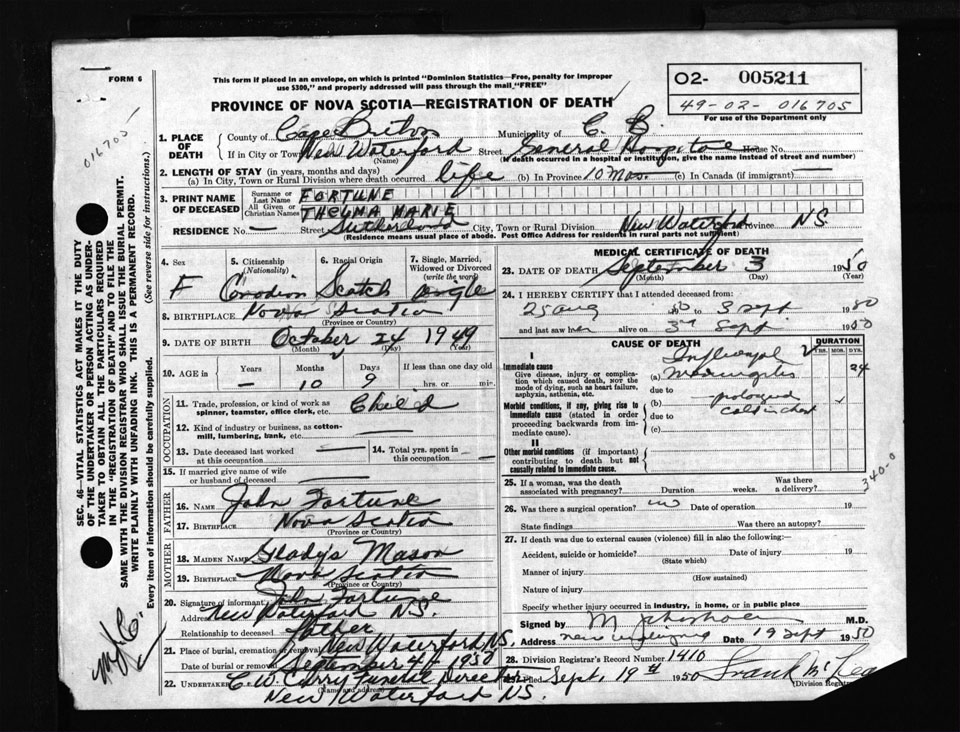 FORM 6
This form if placed in an envelope, on which is printed "Dominion Statistics—Free, penalty for improper
use $300," and properly addressed will pass through the mail "FREE"
O2- 005211
49-02-016705
For use of the Department only
PROVINCE OF NOVA SCOTIA—REGISTRATION OF DEATH
016705
SEC. 46—VITAL STATISTICS ACT MAKES IT THE DUTY
OF THE UNDERTAKER OR PERSON ACTING AS UNDER-
TAKER TO OBTAIN ALL THE PARTICULARS REQUIRED
IN THE "REGISTRATION OF DEATH" AND TO FILE THE
SAME WITH THE DIVISION REGISTRAR WHO SHALL ISSUE THE BURIAL PERMIT.
WRITE PLAINLY WITH UNFADING INK. THIS IS A PERMANENT RECORD.
Every item of information should be carefully supplied. (See reverse side for instructions.)
1. PLACE OF DEATH
County of Cape Breton Municipality of C. B.
If in City or Town New Waterford Street General Hospital House No.
(Name) (If death occurred in a hospital or institution, give the name instead of street and number)
2. LENGTH OF STAY (in years, months and days)
(a) In City, Town or Rural Division where death occurred life (b) In Province 10 Mos. (c) In Canada (if immigrant) —
3. PRINT NAME OF DECEASED
Surname or Last Name FORTUNE
All Given or Christian Names THELMA MARIE
RESIDENCE No. — Street Sutherland City, Town or Rural Division New Waterford Province NS
(Residence means usual place of abode. Post Office Address for residents in rural parts not sufficient)
4. Sex F
5. Citizenship (Nationality) Canadian
6. Racial Origin Scotch
7. Single, Married, Widowed or Divorced (write the word) single
8. BIRTHPLACE Nova Scotia
(Province or Country)
9. DATE OF BIRTH October 24 1949
(Month) (Day) (Year)
10. AGE in Years Months Days If less than one day old
— 10 9 hrs. or min.
OCCUPATION
11. Trade, profession, or kind of work as spinner, teamster, office clerk, etc. Child
12. Kind of industry or business, as cotton-mill, lumbering, bank, etc. —
13. Date deceased last worked at this occupation —
14. Total yrs. spent in this occupation —
15. If married give name of wife or husband of deceased —
FATHER
16. Name John Fortune
17. Birthplace Nova Scotia
(Province or Country)
MOTHER
18. Maiden Name Gladys Mason
19. Birthplace Nova Scotia
(Province or Country)
20. Signature of informant John Fortune
Address New Waterford N.S.
Relationship to deceased Father
21. Place of burial, cremation or removal New Waterford, NS.
Date of burial or removal September 4th 1950
22. Undertaker C. W. Curry Funeral Director
(Name and address)
New Waterford NS.
MEDICAL CERTIFICATE OF DEATH
23. DATE OF DEATH September 3 1950
(Month) (Day)
24. I HEREBY CERTIFY that I attended deceased from:
25 aug 1950 to 3 Sept 1950
and last saw her alive on 3rd Sept 1950
CAUSE OF DEATH
DURATION
YRS. MOS. DYS.
I
Immediate cause
Give disease, injury or complication which caused death, NOT the mode of dying, such as heart failure, asphyxia, asthenia, etc.
(a) Influenzal Meningitis
due to
Morbid conditions, if any, giving rise to immediate cause (stated in order proceeding backwards from immediate cause).
(b) prolonged cold in chest
due to
(c)
II
Other morbid conditions (if important) contributing to death but not causally related to immediate cause.
340-0
25. If a woman, was the death associated with pregnancy? Duration weeks. Was there a delivery?
26. Was there a surgical operation? no Date of operation 19
State findings Was there an autopsy?
27. If death was due to external causes (violence) fill in also the following:—
Accident, suicide or homicide? Date of injury 19
(State which)
Manner of injury
(How sustained)
Nature of injury
Specify whether injury occurred in industry, in home, or in public place
Signed by M.D.
Address Date 19 Sept 1950
28. Division Registrar's Record Number 1410
Filed Sept. 19th 1950 Frank Mc
(Division Registrar)